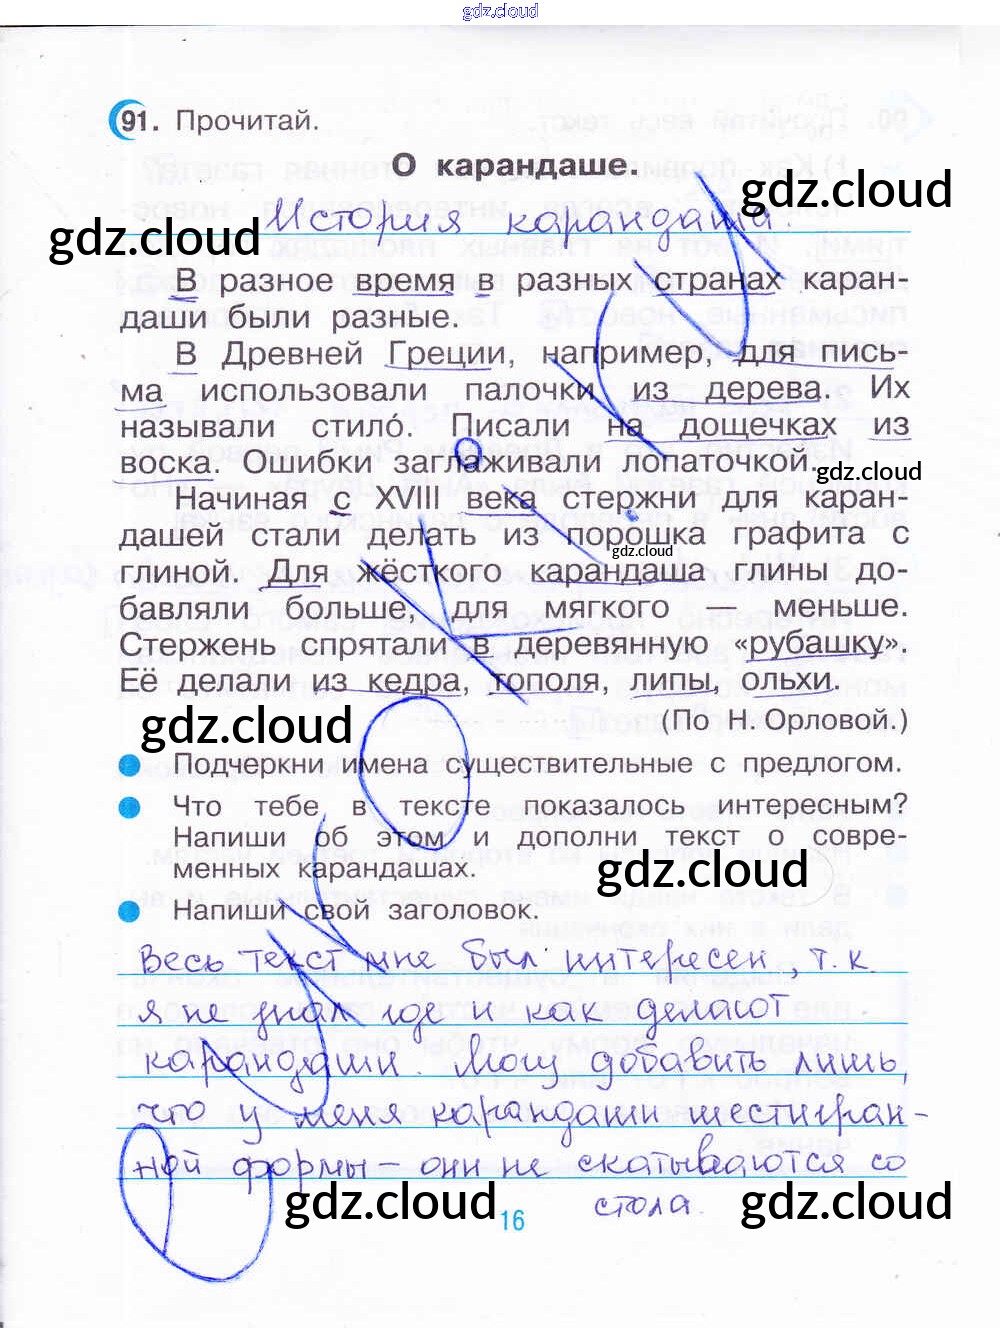 gdz.cloud
91. Прочитай.
О карандаше
gdz.cloud
История карандаша.
gdz.cloud
В разное время в разных странах каран-
даши были разные.
В Древней Греции, например, для пись-
ма использовали палочки из дерева. Их
называли стило. Писали на дощечках из
воска. Ошибки заглаживали лопаточкой.
gdz.cloud
Начиная с XVIII века стержни для каран-
дашей стали делать из порошка графита с
gdz.cloud
глиной. Для жёсткого карандаша глины до-
бавляли больше, для мягкого — меньше.
Стержень спрятали в деревянную «рубашку».
Её делали из кедра, тополя, липы, ольхи.
gdz.cloud
(По Н. Орловой.)
Подчеркни имена существительные с предлогом.
Что тебе в тексте показалось интересным?
Напиши об этом и дополни текст о совре-
менных карандашах.
gdz.cloud
Напиши свой заголовок.
Весь текст мне был интересен, т.к.
я не знал где и как делают
карандаши. Могу добавить лишь,
что у меня карандаши шестигран-
ной формы – они не скатываются со
стола.
gdz.cloud
16
gdz.cloud